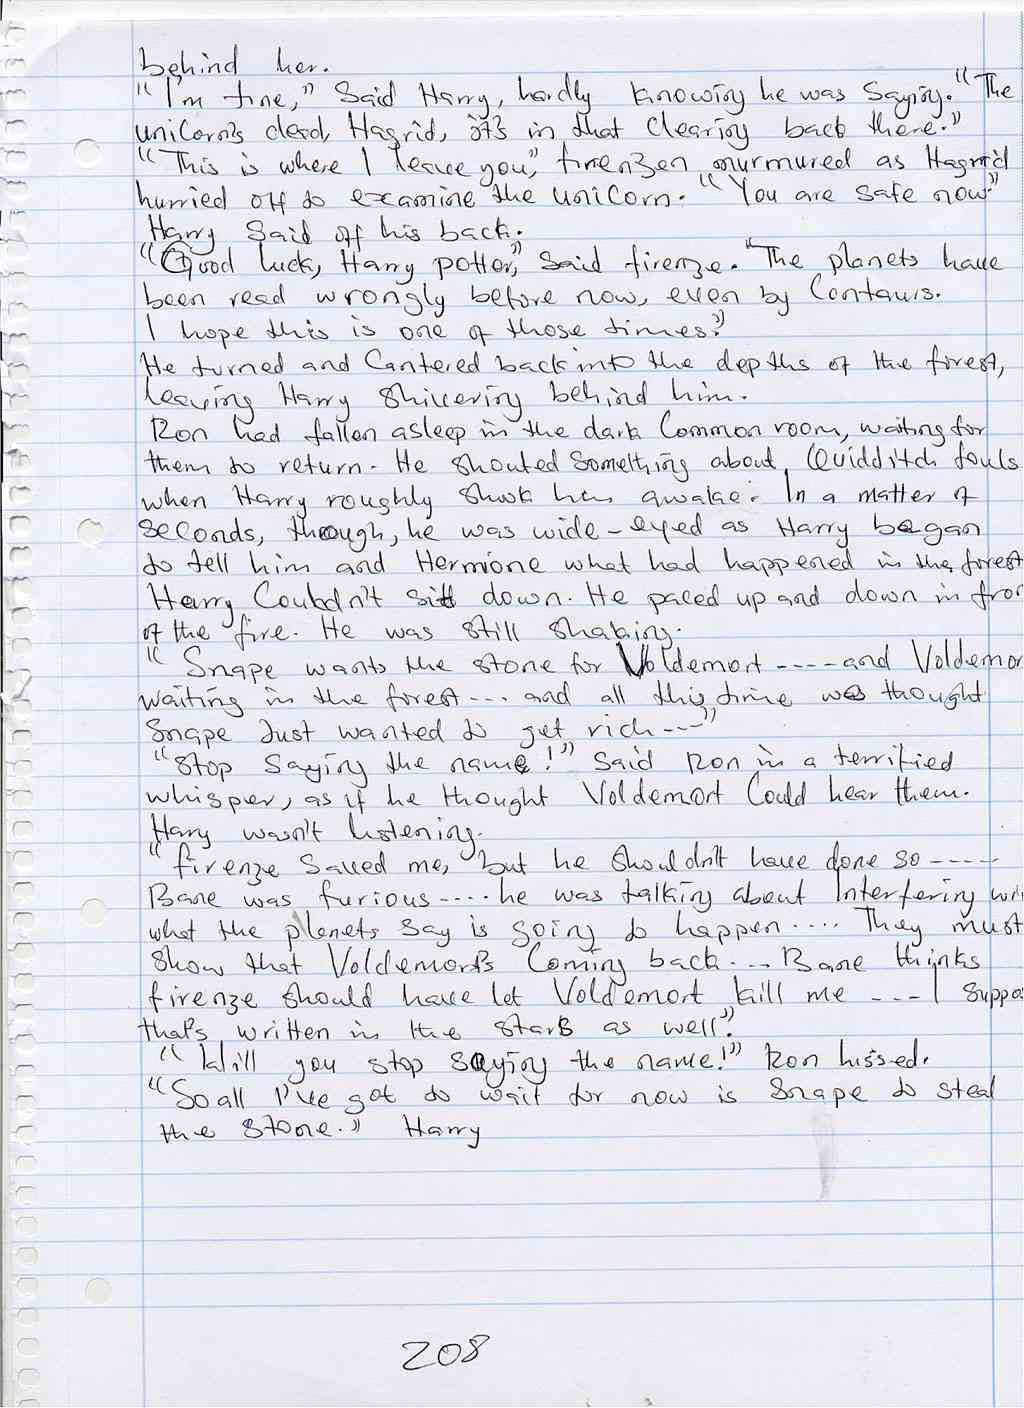 behind her.
"I'm fine," Said Harry, hardly knowing he was Saying. "The
unicorn's dead, Hagrid, it's in that Clearing back there."
"This is where I leave you," firenzen murmured as Hagrid
hurried off to examine the unicorn. "You are safe now"
Harry Said off his back.
"Good luck, Harry potter," Said firenze. "The planets have
been read wrongly before now, even by Centaurs.
I hope this is one of those times."
He turned and Cantered back into the depths of the forest,
leaving Harry Shivering behind him.
Ron had fallen asleep in the dark Common room, waiting for
them to return. He shouted Something about Quidditch fouls
when Harry roughly Shook him awake. In a matter of
Seconds, though, he was wide-eyed as Harry began
to tell him and Hermione what had happened in the forest
Harry Couldn't sitt down. He paced up and down in fron
of the fire. He was still shaking.
"Snape wants the stone for Voldemort ----and Voldemor
waiting in the forest--- and all this time we thought
Snape Just wanted to get rich---"
"Stop Saying the name!" Said Ron in a terrified
whisper, as if he thought Voldemort Could hear them.
Harry wasn't listening.
"firenze Saved me, but he Shouldn't have done so -----
Bane was furious ....he was talking about Interfering wi
what the planets Say is going to happen .... They must
Show that Voldemort's Coming back... Bane thinks
firenze Should have let Voldemort kill me ---I Suppo
that's written in the stars as well."
"Will you stop saying the name!" Ron hissed.
"So all I've got to wait for now is Snape to steal
the stone." Harry
208